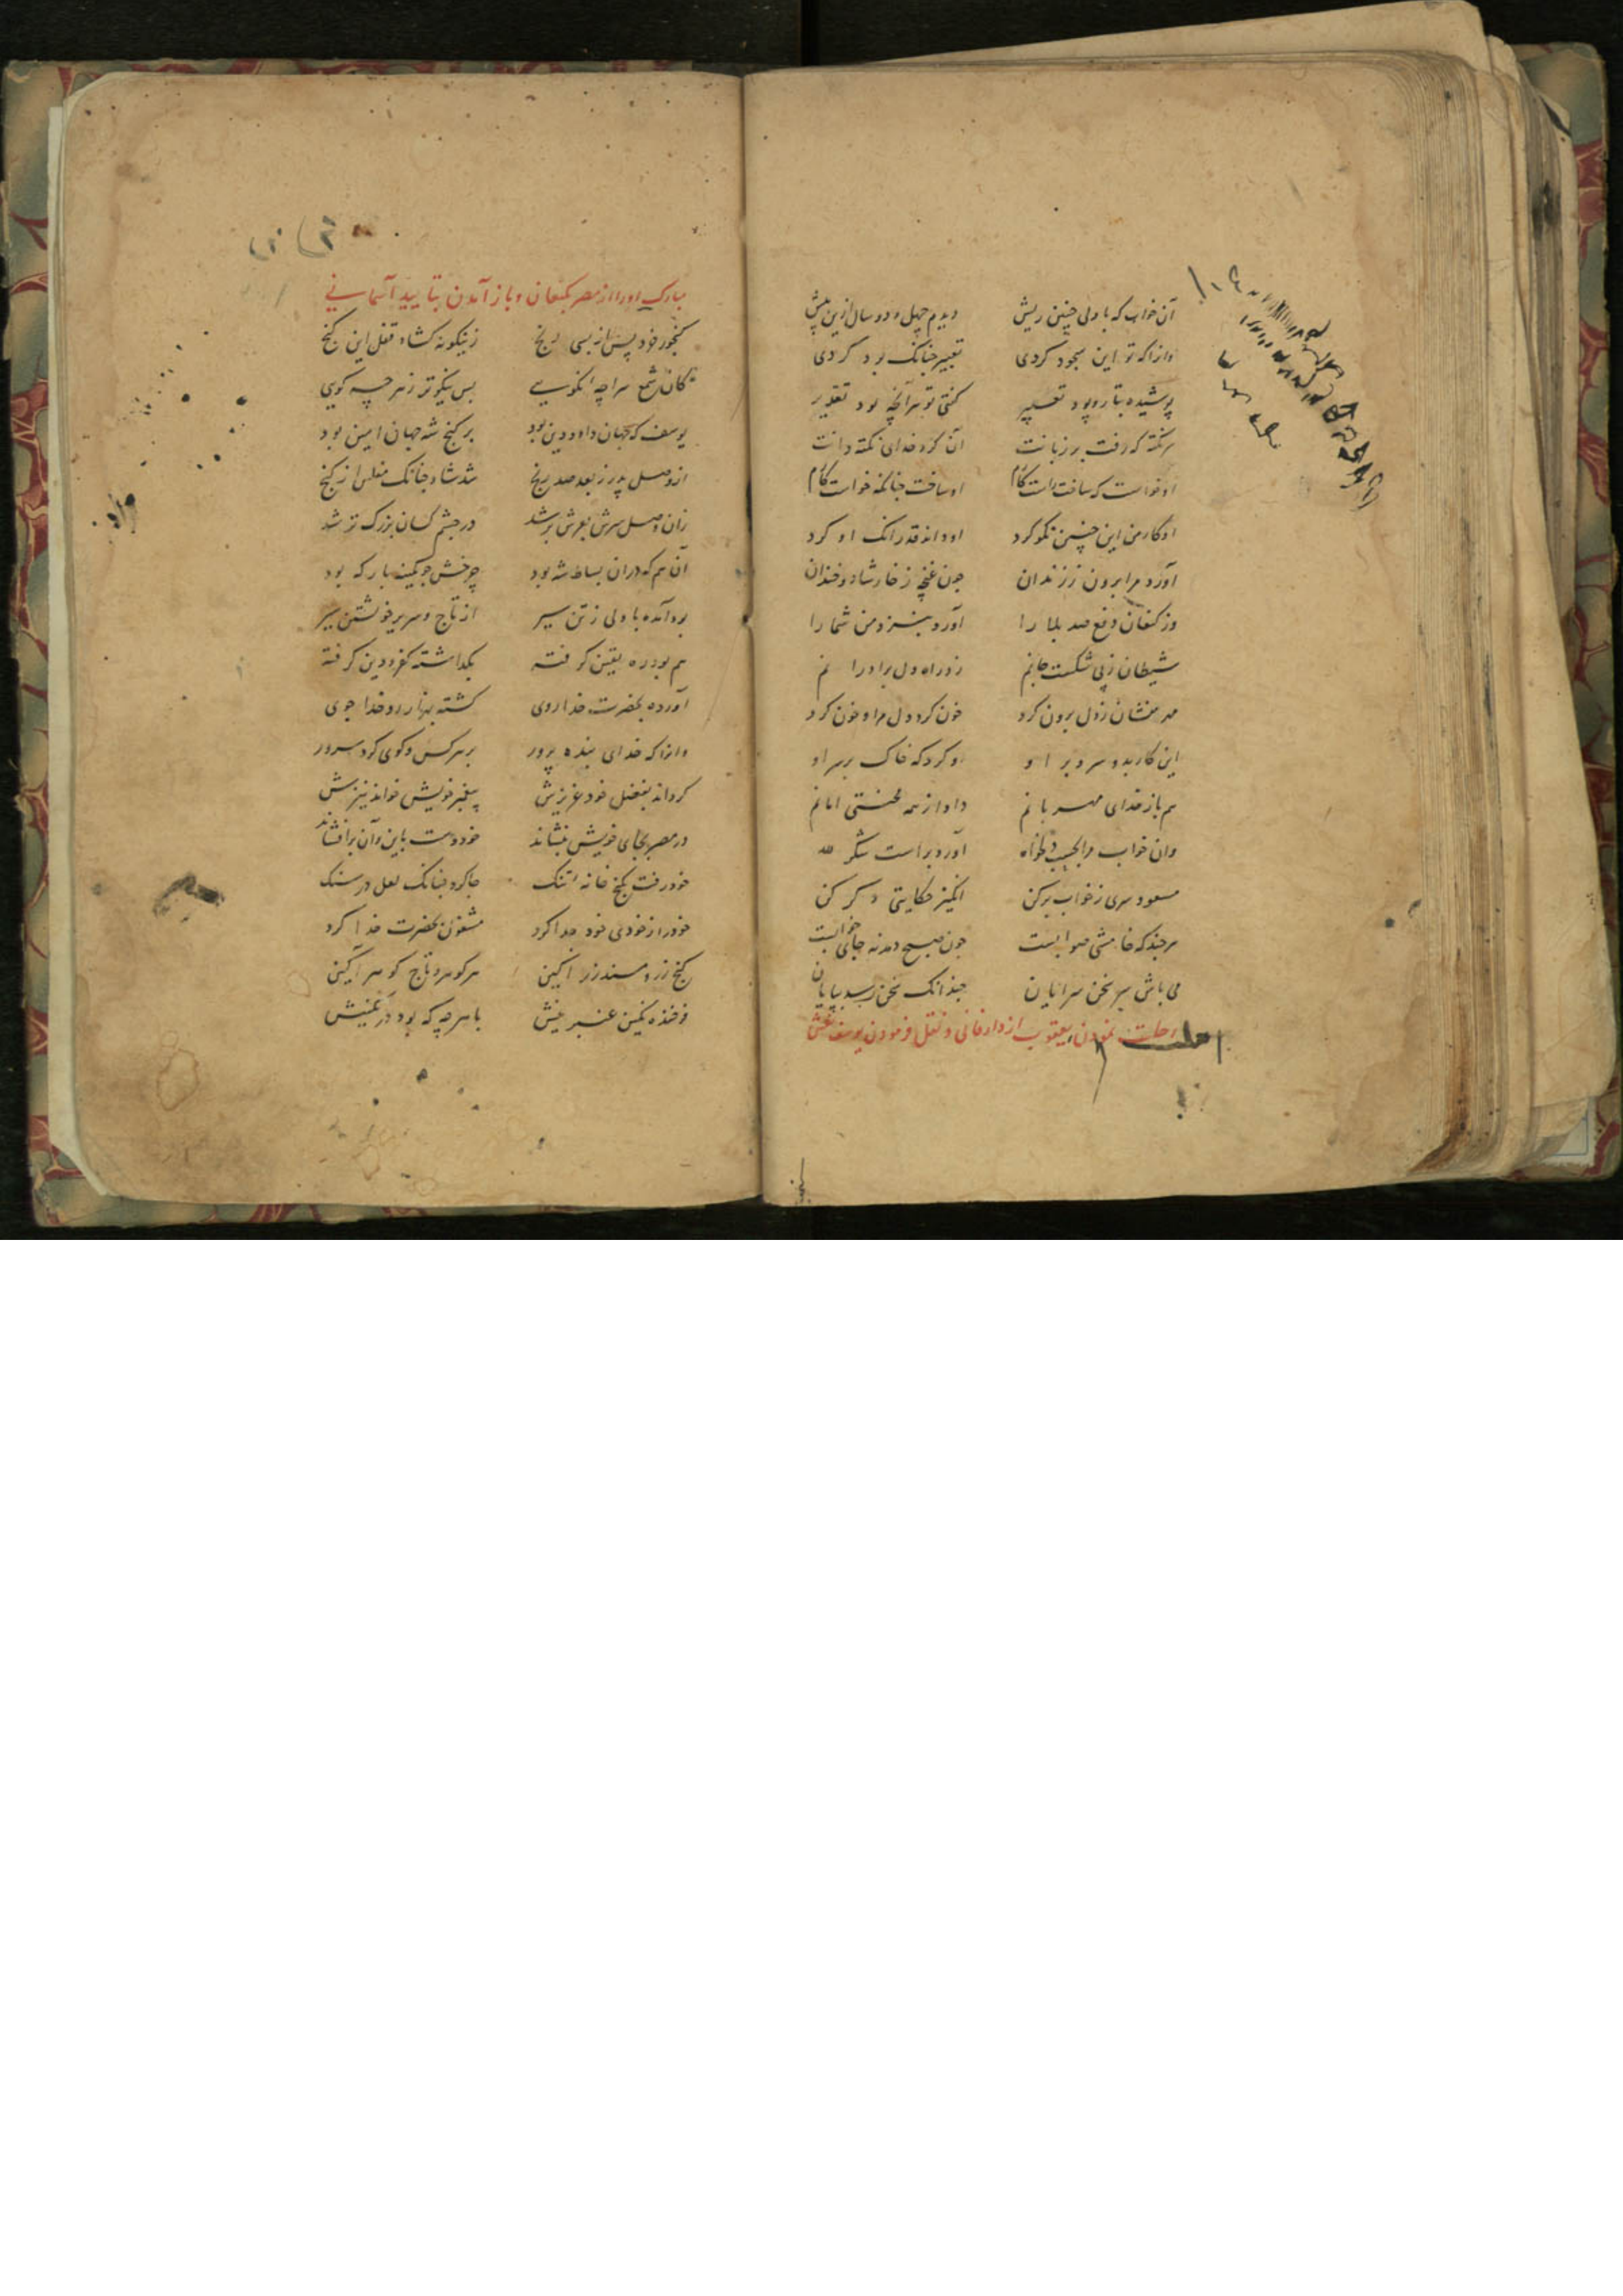 آن خواب که با دلی چنین ریش دیدم چهل و دو سال ازین پیش
وانرا که تو این سجود کردی تعبیر چنانک بود کردی
پوشیده بتار و پود تعبیر گفتی تو هر آنچه بود تقدیر
هر نکته که رفت بر زبانت آن کرد خدای نکته دانت
او خواست که ساخت راست کام او ساخت چنانکه خواست کام
او کار من این چنین نکو کرد او داند قدر آنک او کرد
آورد مرا برون ز زندان چون غنچه ز خار شاد و خندان
وز کنعان دفع صد بلا را آورد بنزد من شما را
شیطان ز پی شکست جانم زد راه دل برادرانم
مهر منشان ز دل برون کرد خون کرد دل مرا و خون کرد
این کار بد و سر و بر او او کرد که خاک بر سر او
هم باز خدای مهربانم داد از همه محنتی امانم
وان خواب مرا بحسب دلخواه آورد براست شکر لله
مسعود سری ز خواب بر کن انگیز حکایتی دگر کن
هرچند که خامشی صوابست چون صبح دمد نه جای خوابست
می باش بسر سخن سرایان چندانک سخن رسد بپایان
رحلت نمودن یعقوب از دار فانی و نقل فرمودن یوسف نعش
مبارک او را از مصر بکنعان و باز آمدن بتایید آسمانی
گنجور خود پس از بسی رنج زینگونه گشاد قفل این گنج
کان شمع سراچه نکویی بس نیکوتر ز هر چه گویی
یوسف که جهان داد و دین بود بر گنج شه جهان امین بود
از وصل پدر ز بعد صد رنج شد شاد چنانک مفلس از گنج
زان وصل سرش بعرش بر شد در چشم کسان بزرگ تر شد
آن هم که در آن بساط شه بود چرخش چو کمینه بارگه بود
بود آمده با دلی ز تن سیر از تاج و سریر خویشتن سیر
هم بود ره یقین گرفته بگذاشته کفر و دین گرفته
آورده بحضرت خدا روی گشته بنیاز رو خدا جوی
وانرا که خدای بنده پرور بر هر کس و کوی کرد سرور
گرداند بفضل خود عزیزش پیغمبر خویش خواند نیزش
در مصر بجای خویش بنشاند خود دست باین و آن برافشاند
خود رفت بکنج خانه تنگ جا کرد چنانک لعل در سنگ
خود را ز خودی خود جدا کرد مشغول بحضرت خدا کرد
گنج زر و مسند زر آگین هر گوهر و تاج گوهر آگین
فرخنده نگین عنبرینش با هر چه که بود در نگینش